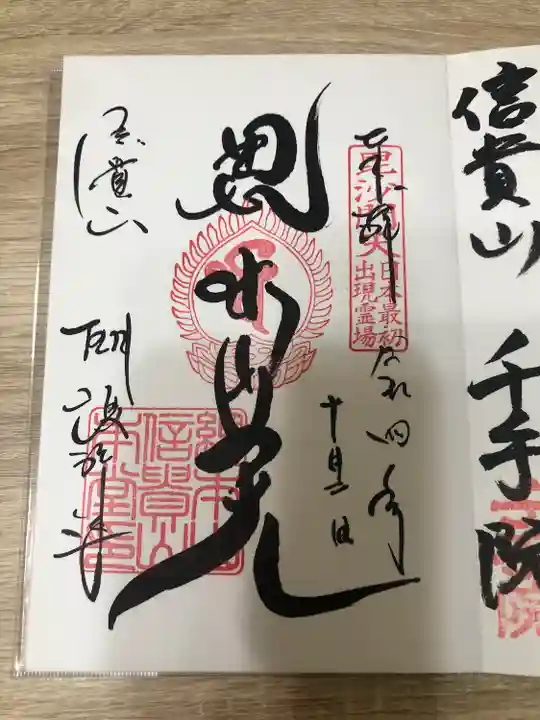 信貴山 千手院
奉拝
毘沙門天
日本最初
出現霊場
令和四年
十月
日
毘沙門天
総本山
信貴山
本堂印
信貴山
朝護孫子寺